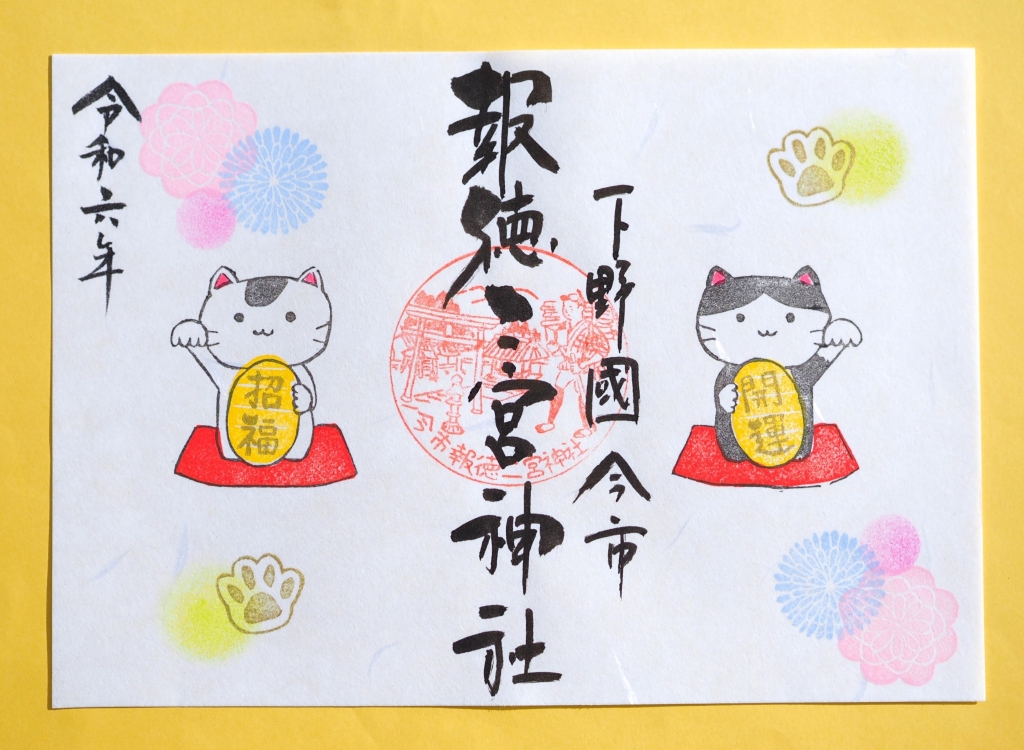 下野國 今市
報徳二宮神社
令和六年
開運
招福
今市報徳二宮神社